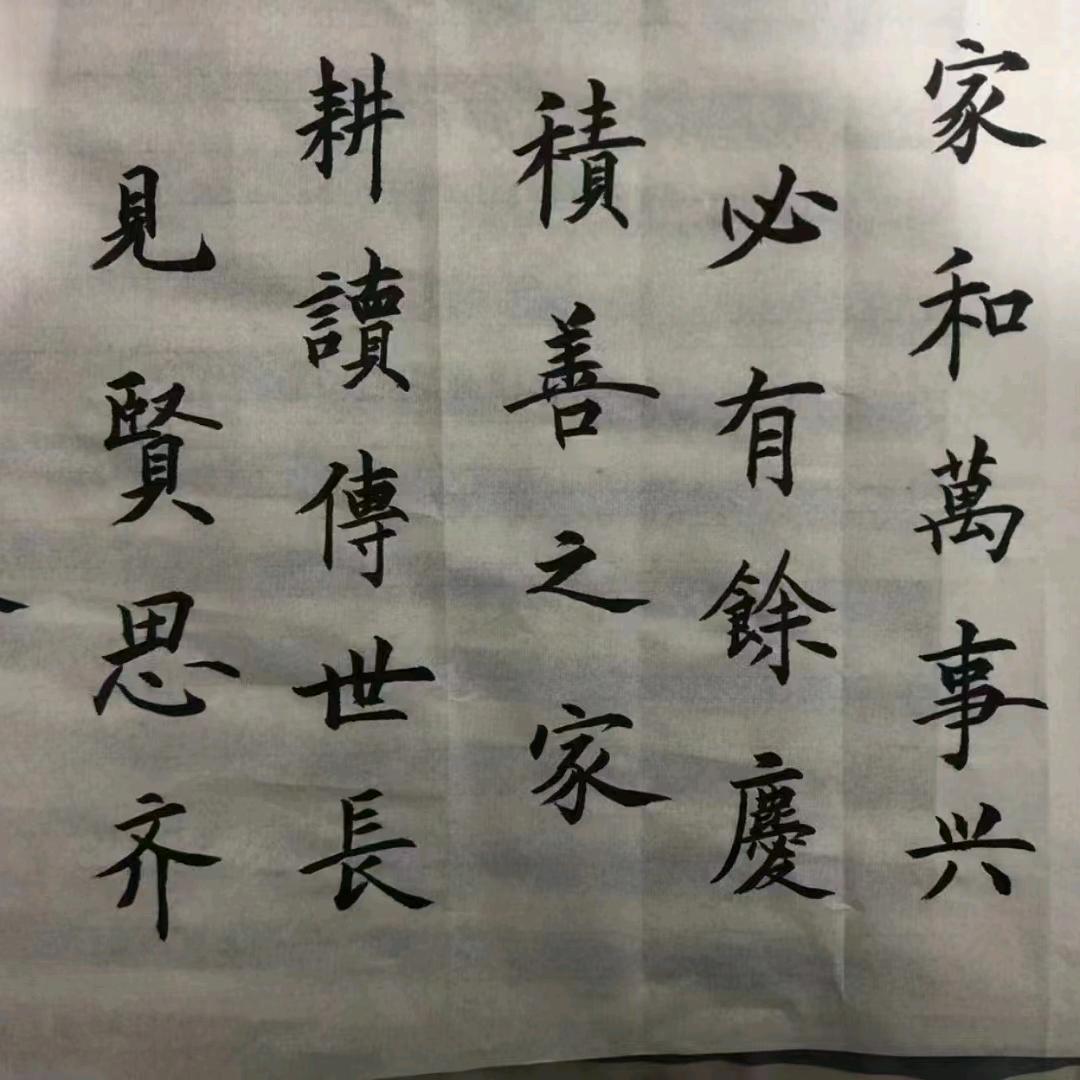 家和萬事兴
必有餘慶
積善之家
耕讀傳世長
見賢思齐